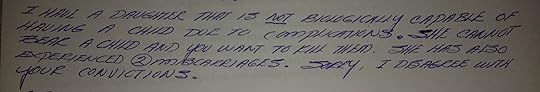 I HAVE A DAUGHTER THAT IS NOT BIOLOGICALLY CAPABLE OF
HAVING A CHILD DUE TO COMPLICATIONS. SHE CANNOT
BEAR A CHILD AND YOU WANT TO KILL THEM. SHE HAS ALSO
EXPERIENCED ② MISCARRIAGES. SORRY, I DISAGREE WITH
YOUR CONVICTIONS.